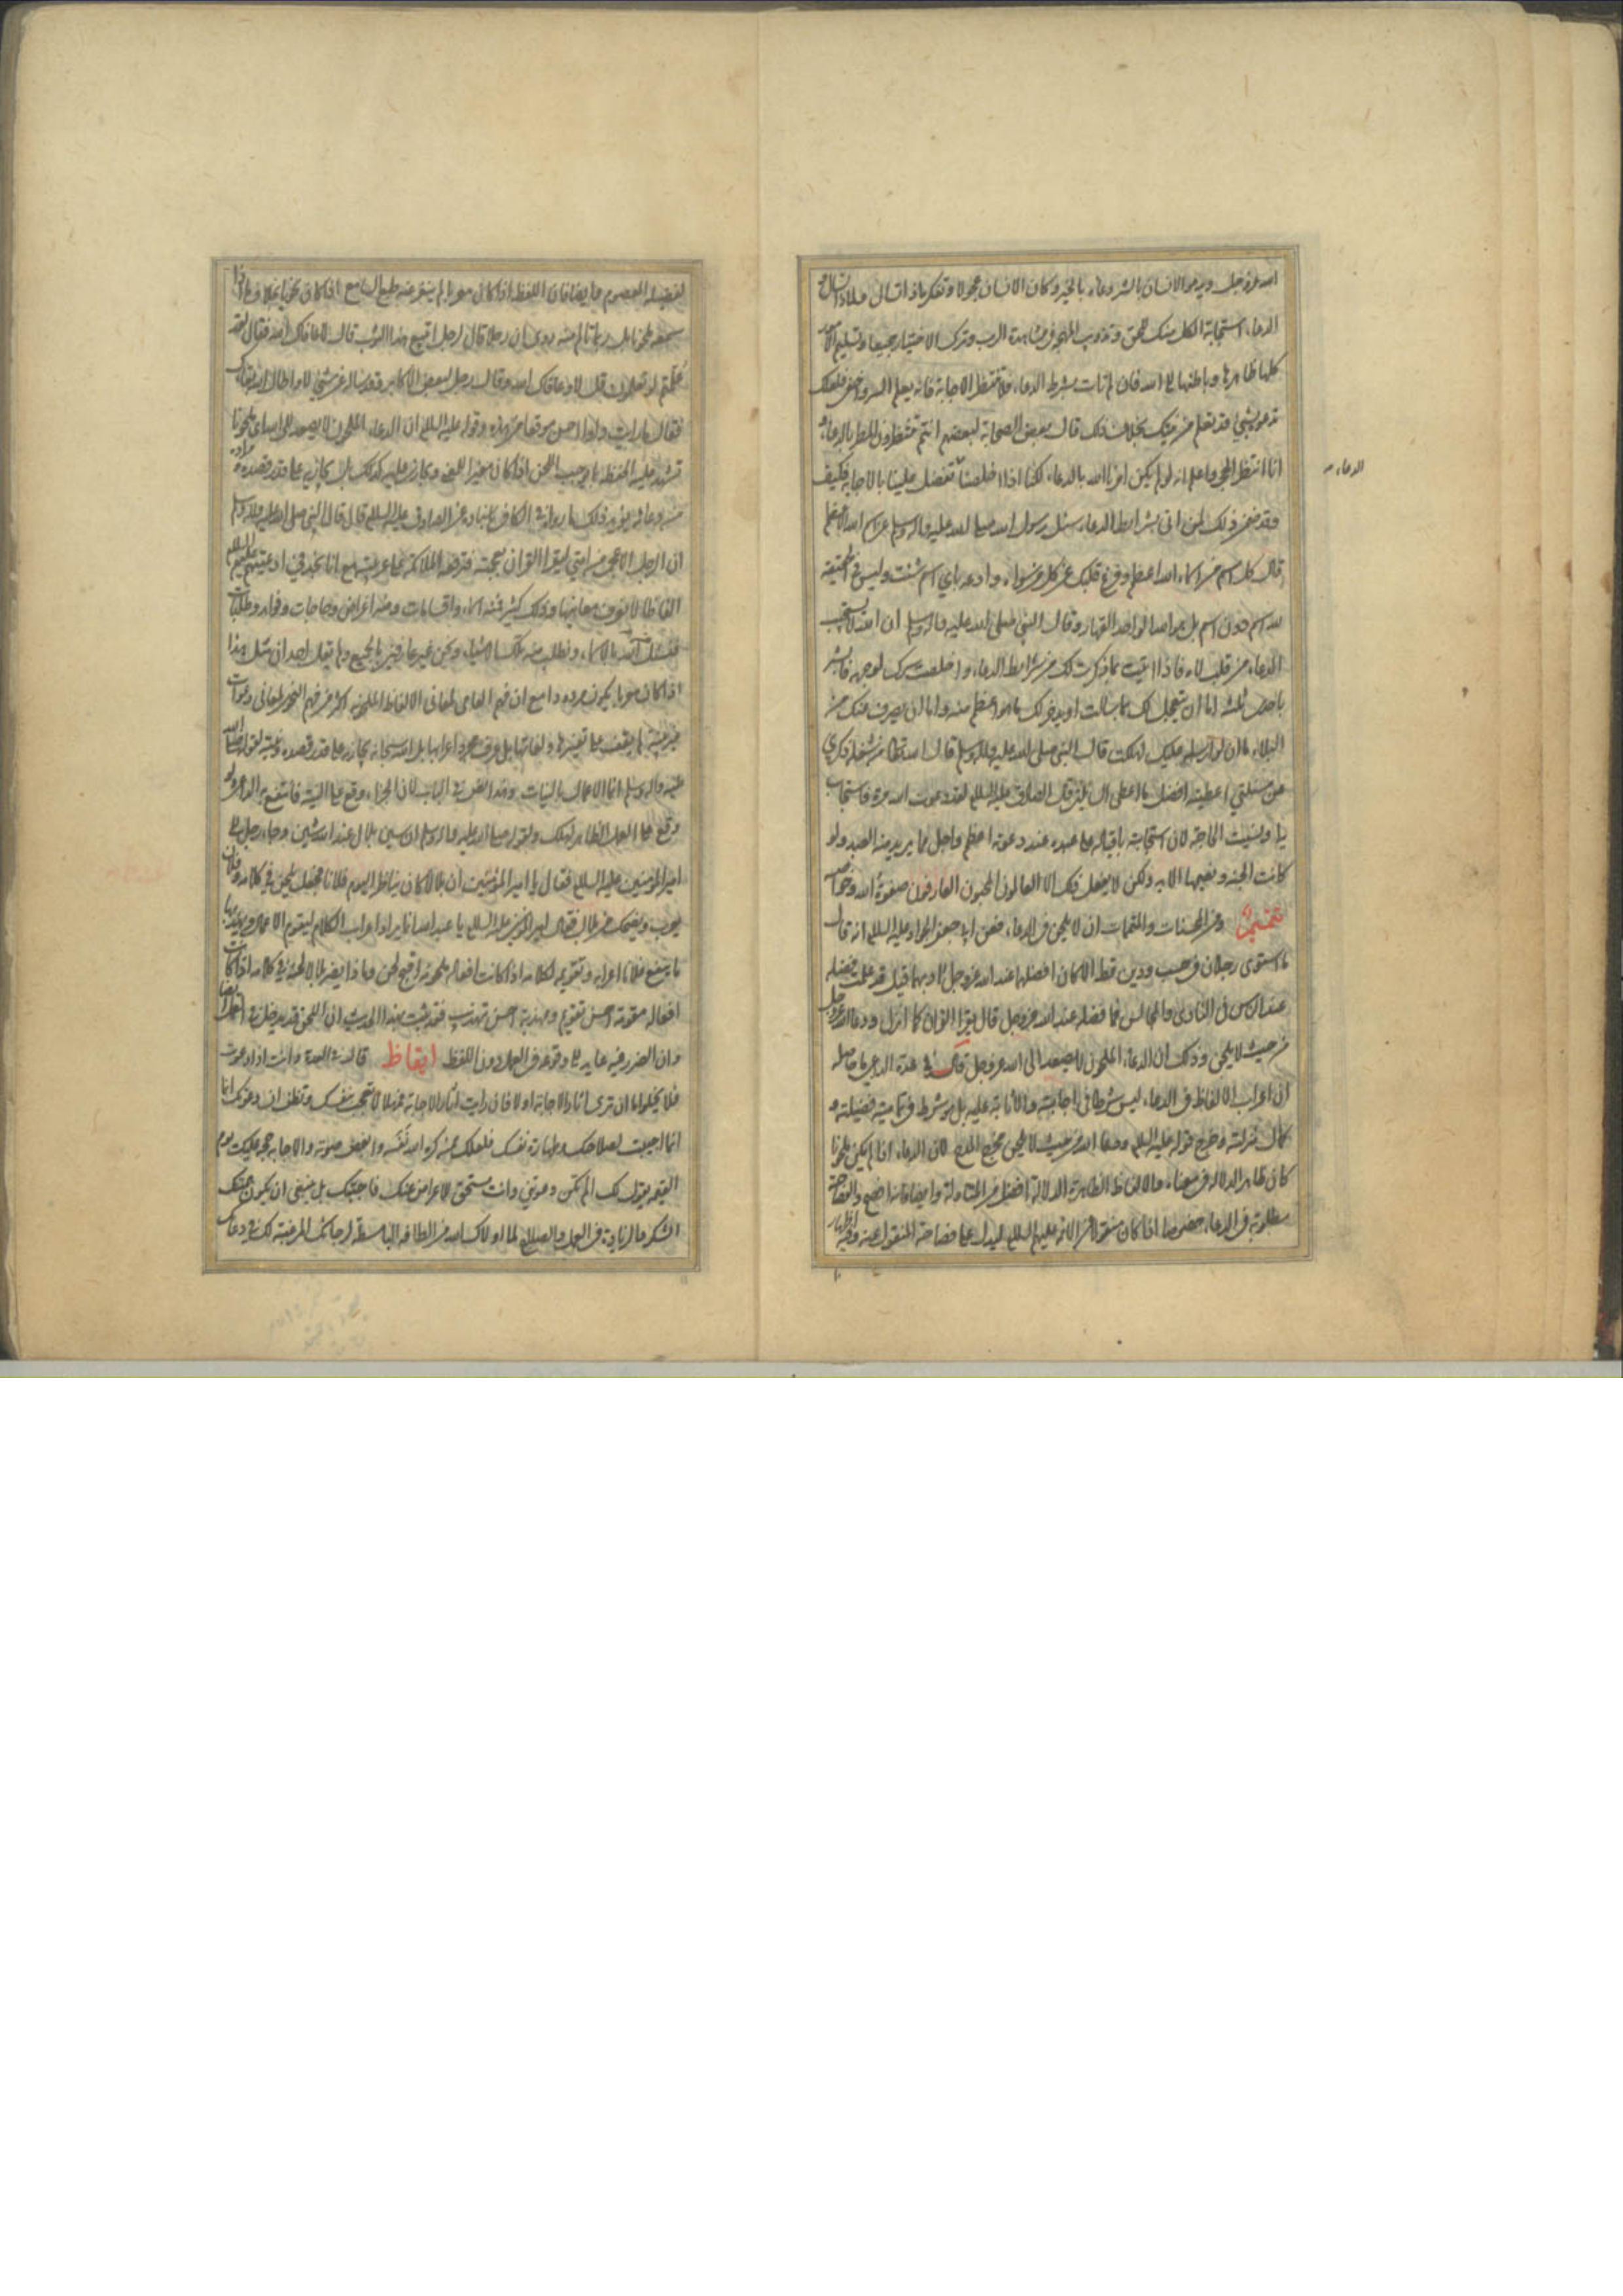 الله عز وجل ويدعو الانسان بالشر دعاءه بالخير وكان الانسان عجولا وتفكر ماذا تسال ولماذا تسال و
الدعاء استجابة الكل منك للحق وتذويب المهجة في مشاهدة الرب وترك الاختيار جميعا وتسليم الامور
كلها ظاهرها وباطنها الى الله فان لم تات بشرط الدعاء فلا تنتظر الاجابة فانه يعلم السر واخفى فلعلك
تدعوه بشيء قد يعلم من نيتك بخلاف ذلك قال بعض الصحابة لبعضهم انتم تنتظرون المطر بالدعاء و
انا انتظر الحجر واعلم انه لو لم يكن امرنا الله بالدعاء لكنا اذا اخلصنا تفضل علينا بالاجابة فكيف
الدعاء
وقد ضمن ذلك لمن اتى بشرايط الدعاء سئل رسول الله صلى الله عليه واله وسلم عن اسم الله الاعظم
قال كل اسم من اسماء الله اعظم وفرغ قلبك عن كل من سواه وادعه باي اسم شئت وليس في الحقيقة
لله اسم دون اسم بل هو الله الواحد القهار وقال النبي صلى الله عليه واله وسلم ان الله لا يستجيب
الدعاء من قلب لاه فاذا اتيت بما ذكرت لك من شرايط الدعاء واخلصت سرك لوجهه فابشر
باحدى ثلثة اما ان يتعجل لك بما سالت او يدخر لك ما هو اعظم منه واما ان يصرف عنك من
البلاء ما ان لو ارسله عليك لهلكت قال النبي صلى الله عليه واله وسلم قال الله تعالى من شغله ذكري
عن مسئلتي اعطيته افضل ما اعطي السائلين قال الصادق عليه السلم لقد دعوت الله مرة فاستجاب
لي ونسيت الحاجة لان استجابته باقباله على عبده عند دعوته اعظم واجل مما يريد منه العبد ولو
كانت الجنة ونعيمها الابد ولكن لا يعقل ذلك الا العالمون المحبون العارفون صفوة الله وخواصه
تتميم ومن المحسنات والمتممات ان لا يلحن في الدعاء فعن ابي جعفر الجواد عليه السلم انه قال
ما استوى رجلان في حسب ودين قط الا كان افضلهما عند الله عز وجل ادبهما قيل قد علمت فضله
عند الناس في النادي والمجالس فما فضله عند الله عز وجل قال بقراءة القران كما انزل ودعائه الله عز وجل
من حيث لا يلحن وذلك ان الدعاء الملحون لا يصعد الى الله عز وجل قال في عدة الداعي ما حاصله
ان اعراب الالفاظ في الدعاء ليس شرطا في اجابته والاثابة عليه بل هو شرط في تمامية فضيلته و
كمال منزلته وخرج قوله عليه السلم ودعاء الله من حيث لا يلحن مخرج المدح لان الدعاء اذا لم يكن ملحونا
كان ظاهر الدلالة في معناه والالفاظ الظاهرة الدلالة افضل من المتاولة وايضا فانه افصح والفصاحة
مطلوبة في الدعاء خصوصا اذا كان منقولا عن الائمة عليهم السلم ليدل على فصاحة المنقول عنه وفيه اظهار
١٠
لفضيلة المعصوم وايضا فان اللفظ اذا كان معربا لم ينفر عنه طبع السامع اذا كان نحويا بخلاف ما اذا
سمعه ملحونا بل ربما تالم منه روي ان رجلا قال لرجل اتبيع هذا الثوب قال لا عافاك الله فقال لقد
علمتم لو تعلمون قل لا وعافاك الله وقال رجل لبعض الاكابر وقد ساله عن شيء لا واطال الله بقاءك
فقال ما رايت واوا احسن موقعا من هذه وقوله عليه السلم ان الدعاء الملحون لا يصعد الى الله اي ملحونا
تشهد عليه الحفظة بما يوجبه اللحن اذا كان مغيرا للمعنى ويجازى عليه كذلك بل يجازيه على قدر قصده و مراده
من دعائه ويؤيد ذلك ما رواه في الكافي باسناده عن الصادق عليه السلم قال قال النبي صلى الله عليه واله وسلم
ان الرجل الاعجمي من امتي ليقرا القران بعجمته فترفعه الملائكة على عربيته مع انا نجد في ادعيتهم عليهم السلم
الفاظا لا نعرف معانيها وذلك كثير فمنه اسماء واقسامات ومنه اغراض وحاجات وفوايد وطلبات
فنسئل من الله بالاسماء ونطلب منه تلك الاشياء ونحن غير عارفين بالجميع ولم يقل احد ان مثل هذا
اذا كان معربا يكون مردودا مع ان فهم العامي لمعاني الالفاظ الملحونة اكثر من فهم النحوي لمعاني دعوات
عربية لم يقف على تفسيرها ولغاتها بل عرف مجرد اعرابها بل الله سبحانه يجازيه على قدر قصده ونيته لقوله صلى الله
عليه واله وسلم انما الاعمال بالنيات وهذا نص في الباب لان الجزاء وقع على النية فانتفع به الداعي ولو
وقع على العمل الظاهر لهلك ولقوله صلى الله عليه واله وسلم ان سين بلال عند الله شين وجاء رجل الى
امير المؤمنين عليه السلم فقال يا امير المؤمنين ان بلالا كان يناظر اليوم فلانا فجعل يلحن في كلامه وفلان
يعرب ويضحك من بلال فقال امير المؤمنين عليه السلم يا عبد الله انما يراد اعراب الكلام ليقوم الاعمال ويهذبها
ما ينفع فلانا اعرابه وتقويمه لكلامه اذا كانت افعاله ملحونة اقبح لحن وماذا يضر بلالا لحنه في كلامه اذا كانت
افعاله مقومة احسن تقويم ومهذبة احسن تهذيب فقد ثبت بهذا الحديث ان اللحن قد يدخل في العمل ايضا
وان الضرر فيه عايد الى وقوعه في العمل دون اللفظ ايقاظ قال في العدة وانت اذا دعوت
فلا يخلو اما ان ترى اثار الاجابة او لا فان رايت اثار الاجابة فمهلا لا تعجب بنفسك وتظن ان دعوتك انما
اجيبت لصلاحك وطهارة نفسك فلعلك ممن كره الله نفسه وابغض صوته والاجابة حجة عليك يوم
القيمة يقول لك الم تكن دعوتني وانت مستحق للاعراض عنك فاجبتك بل ينبغي ان يكون همك
الشكر والزيادة في العمل والصلاح لما اولاك الله من الطافه الباسطة لرجائك المرغبة لك في دعائك
١١